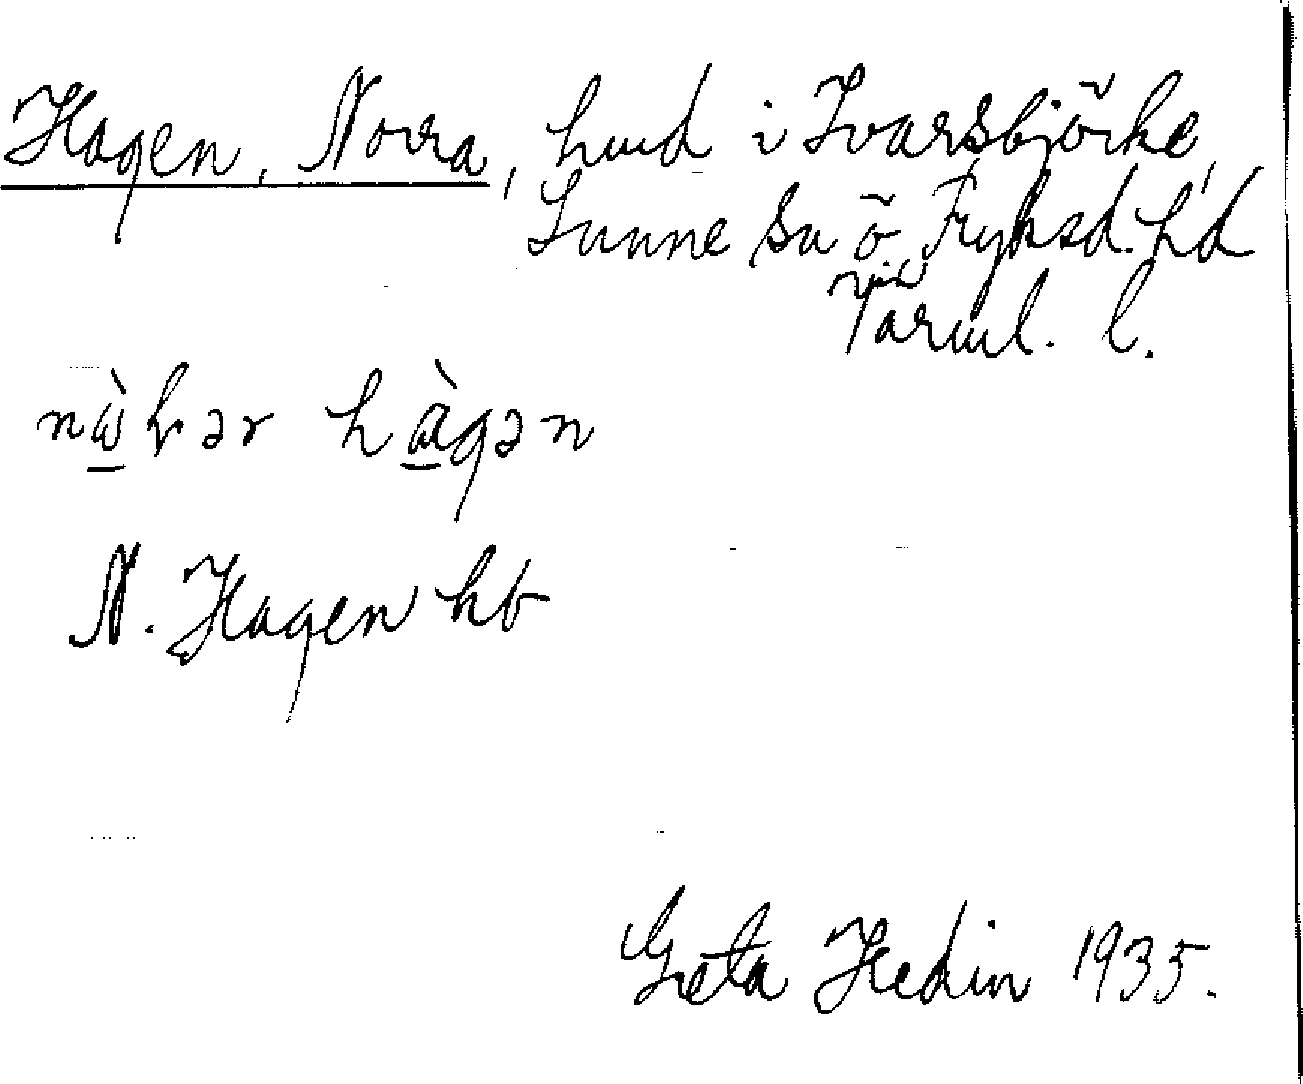 Hagen, Norra, hmd i Ivarsbjörke,
Sunne sn Ö. Fryksd. hd
Värml. l.
hàgən
N. Hagen hb
Greta Hedin 1935.